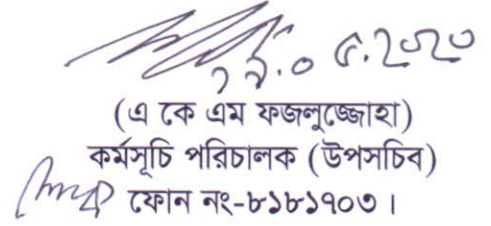 (এ কে এম ফজলুজ্জোহা)
কর্মসূচি পরিচালক (উপসচিব)
ফোন নং-৮১৮১৭০৩।